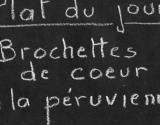 Plat du jour
Brochettes
de coeur
la péruvienn